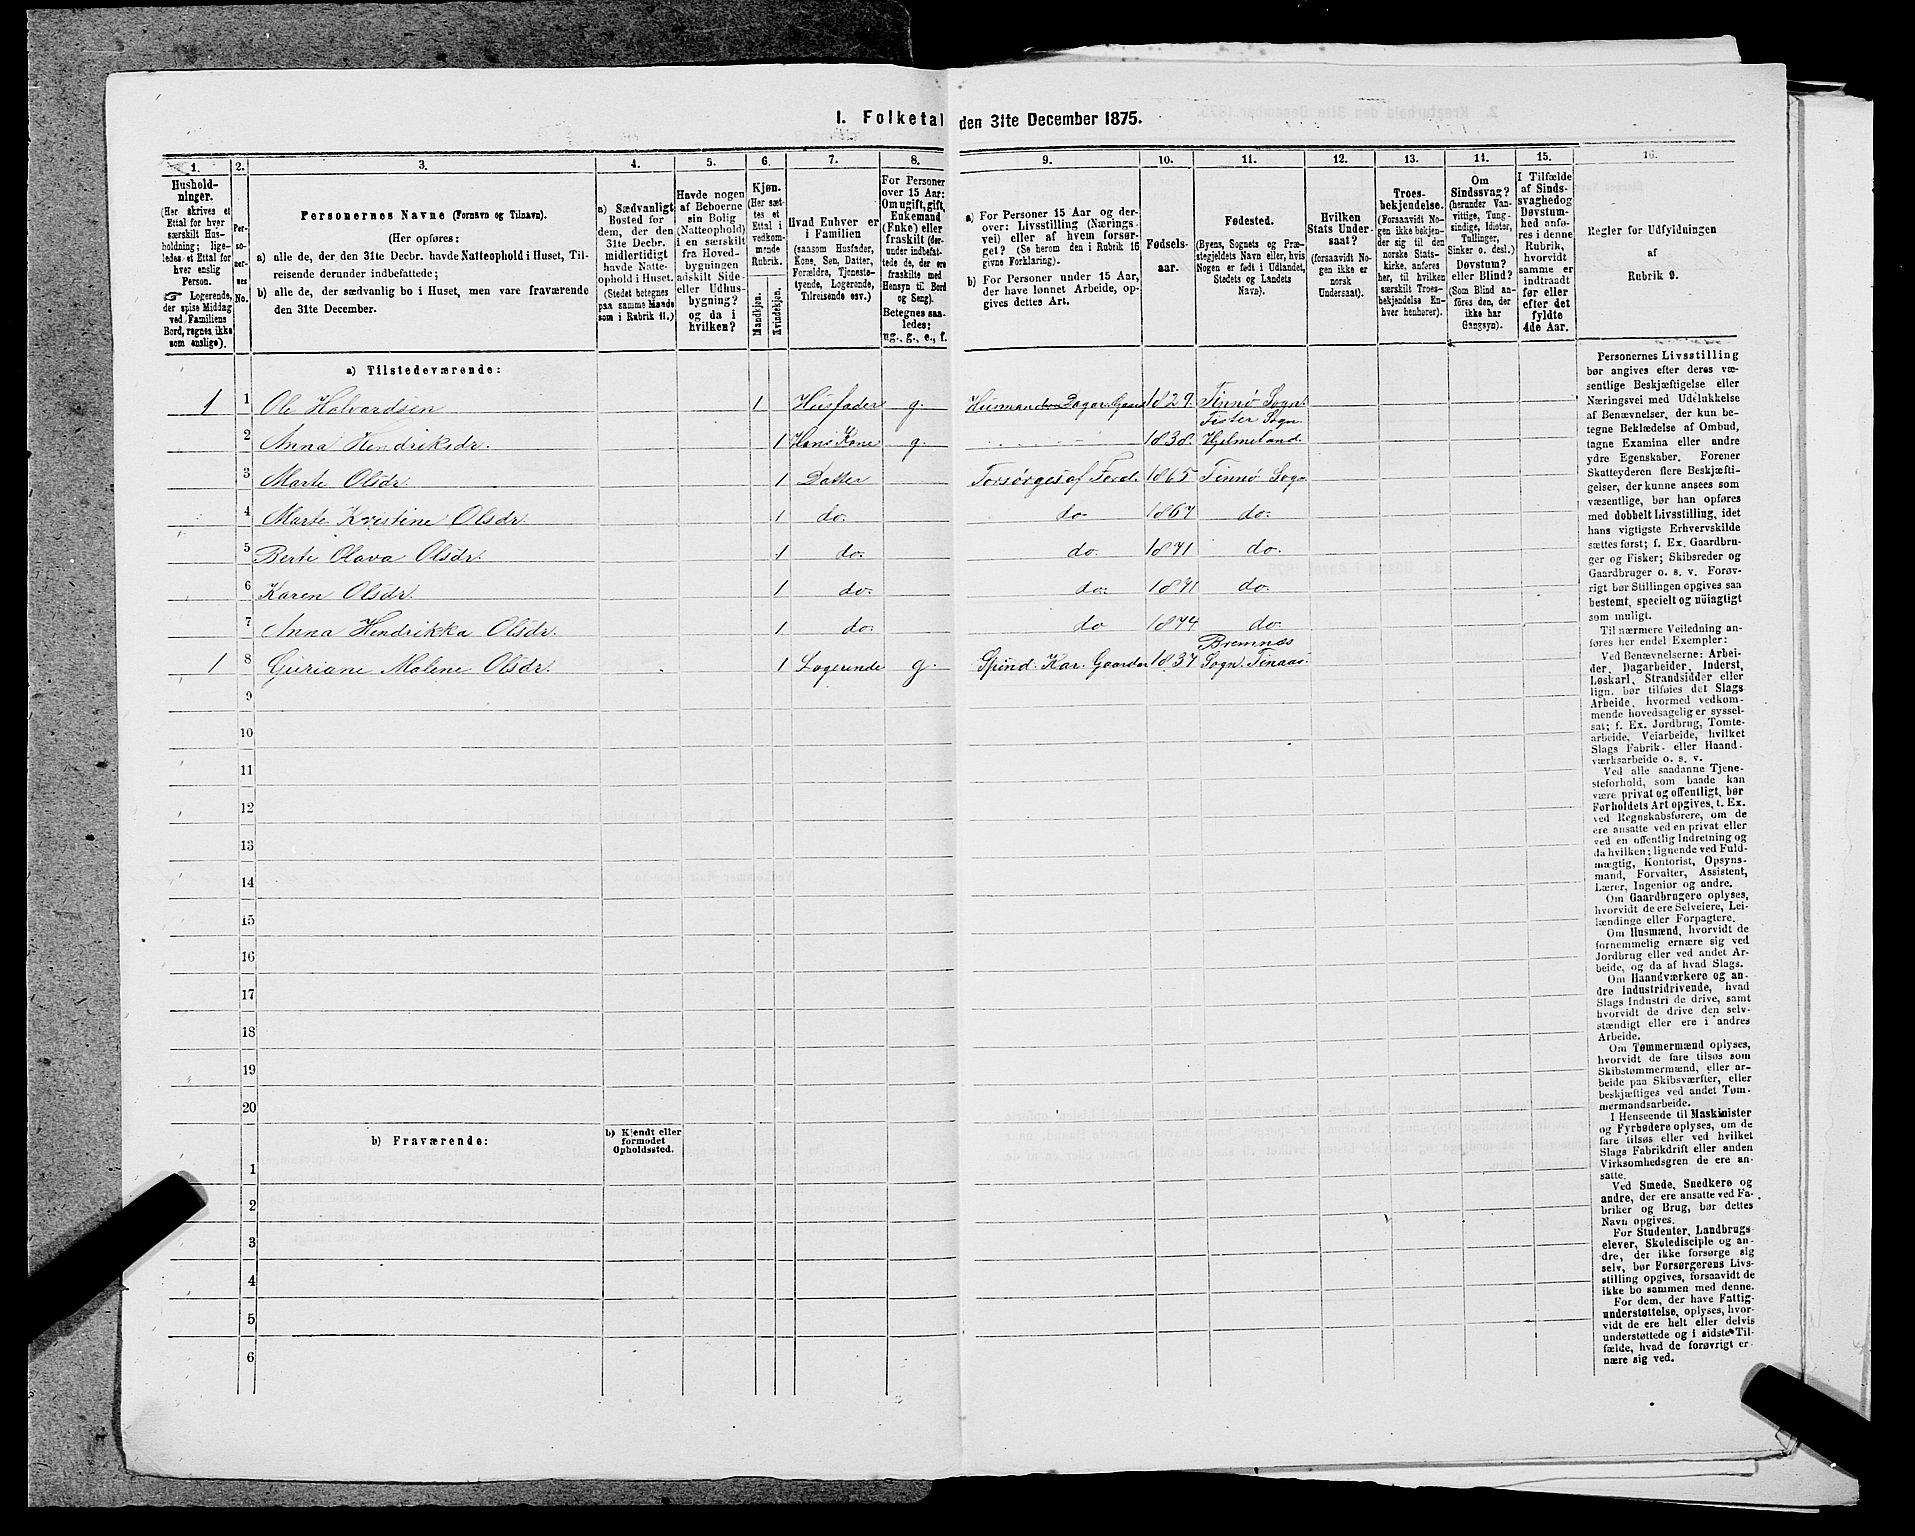 I. Folketal den 31te December 1875.
1. 2. 3. 4. 5. 6. 7. 8. 9. 10. 11. 12. 13. 14. 15. 16.
Hushold-
ninger.
(Her skrives et
Ettal for hver
særskilt Hus-
holdning; lige-
ledes et Ettal for
hver enslig
Person.
☞ Logerende,
der spise Middag
ved Familiens
Bord, regnes ikke
som enslige).
Per-
so-
ner-
nes
No.
Personernes Navne (Fornavn og Tilnavn).
(Her opføres:
a) alle de, der den 31te Decbr. havde Natteophold i Huset, Til-
reisende derunder indbefattede;
b) alle de, der sædvanlig bo i Huset, men vare fraværende
den 31te December.
a) Sædvanligt
Bosted for
dem, der den
31te Decbr.
midlertidigt
havde Natte-
ophold i Huset.
(Stedet betegnes
paa samme Maade
som i Rubrik 11.)
Havde nogen
af Beboerne
sin Bolig
(Natteophold)
i en særskilt
fra Hoved-
bygningen
adskilt Side-
eller Udhus-
bygning?
og da i
hvilken?
Kjøn.
(Her sæt-
tes et
Ettal i
vedkom-
mende
Rubrik.
Mandkjøn.
Kvindekjøn.
Hvad Enhver er
i Familien
(saasom Husfader,
Kone, Søn, Datter,
Forældre, Tjeneste-
tyende, Logerende,
Tilreisende osv.)
For Personer
over 15 Aar:
Om ugift, gift,
Enkemand
(Enke) eller
fraskilt (der-
under indbefat-
tede de, der ere
fraskilte med
Hensyn til Bord
og Seng).
Betegnes saa-
ledes:
ug., g., e., f.
a) For Personer 15 Aar og der-
over: Livsstilling (Nærings-
vei) eller af hvem forsør-
get? (Se herom den i Rubrik 16
givne Forklaring).
b) For Personer under 15 Aar,
der have lønnet Arbeide, op-
gives dettes Art.
Fødsels-
aar.
Fødested.
(Byens, Sognets og Præ-
stegjeldets Navn eller, hvis
Nogen er født i Udlandet,
Stedets og Landets
Navn).
Hvilken
Stats Under-
saat?
(forsaavidt No-
gen ikke er
norsk
Undersaat).
Troes-
bekjendelse.
(Forsaavidt No-
gen ikke bekjen-
der sig til den
norske Stats-
kirke, anføres
her, til hvilken
særskilt Troes-
bekjendelse En-
hver henhører).
Om
Sindssvag?
(herunder Van-
vittige, Tung-
sindige, Idioter,
Tullinger,
Sinker o. desl.)
Døvstum?
eller Blind?
(Som Blind an-
føres den, der
ikke har
Gangsyn).
I Tilfælde
af Sinds-
svaghed og
Døvstum-
hed anfø-
res i denne
Rubrik,
hvorvidt
samme er
indtraadt
før eller
efter det
fyldte
4de Aar.
Regler for Udfyldningen
af
Rubrik 9.
a) Tilstedeværende:
1 1 Ole Halvardsen 1 Husfader g. Husmand 1829. Finnø Sogn.
2 Anna Hendriksdr. 1 Hans Kone g. 1838. Fister Sogn Hjelmeland.
3 Marte Olsdr. 1 Datter Forsørges af Forel. 1865 Finnø Sogn
4 Marte Kristine Olsdr. 1 do. do 1867 do.
5 Berte Olava Olsdr. 1 do. do. 1871 do.
6 Karen Olsdr. 1 do. do. 1871 do.
7 Anna Hendrikka Olsdr. 1 do. do 1874 do.
1 8 Guriane Malene Olsdr. 1 Logerende g. Spind. Kar. Gaarder 1837 Bremnes Sogn. Finaas.
9
10
11
12
13
14
15
16
17
18
19
20
b) Fraværende:
b) Kjendt eller
formodet
Opholdssted.
1
2
3
4
5
6
Personernes Livsstilling
bør angives efter deres væ-
sentlige Beskjæftigelse eller
Næringsvei med Udelukkelse
af Benævnelser, der kun be-
tegne Beklædelse af Ombud,
tagne Examina eller andre
ydre Egenskaber. Forener
Skatteyderen flere Beskjæfti-
gelser, der kunne ansees som
væsentlige, bør han opføres
med dobbelt Livsstilling, idet
hans vigtigste Erhvervskilde
sættes først; f. Ex. Gaardbru-
ger og Fisker; Skibsreder og
Gaardbruger o. s. v. Forøv-
rigt bør Stillingen opgives saa
bestemt, specielt og nøiagtigt
som muligt.
Til nærmere Veiledning an-
føres her endel Exempler:
Ved Benævnelserne: Arbei-
der, Dagarbeider, Inderst,
Løskarl, Strandsidder eller
lign. bør tilføies det Slags
Arbeide, hvormed vedkom-
mende hovedsagelig er syssel-
sat; f. Ex. Jordbrug, Tomte-
arbeide, Veiarbeide, hvilket
Slags Fabrik- eller Haand-
værksarbeide o. s. v.
Ved alle saadanne Tjene-
steforhold, som baade kan
være privat og offentligt, bør
Forholdets Art opgives, t. Ex.
ved Regnskabsførere, om de
ere ansatte ved en privat eller
ved en offentlig Indretning og
da hvilken; lignende ved Fuld-
mægtig, Kontorist, Opsyns-
mand, Forvalter, Assistent,
Lærer, Ingeniør og andre.
Om Gaardbrugere oplyses,
hvorvidt de ere Selveiere, Lei-
lændinge eller Forpagtere.
Om Husmænd, hvorvidt de
fornemmelig ernære sig ved
Jordbrug eller ved andet Ar-
beide, og da af hvad Slags.
Om Haandværkere og an-
dre Industridrivende, hvad
Slags Industri de drive, samt
hvorvidt de drive den selv-
stændigt eller ere i andres
Arbeide.
Om Tømmermænd oplyses,
hvorvidt de fare tilsøs som
Skibstømmermænd, eller ar-
beide paa Skibsværfter, eller
beskjæftiges ved andet Tøm-
mermandsarbeide.
I Henseende til Maskinister
og Fyrbødere oplyses, om de
fare tilsøs eller ved hvilket
Slags Fabrikdrift eller anden
Virksomhedsgren de ere an-
satte.
Ved Smede, Snedkere og
andre, der ere ansatte ved Fa-
briker og Brug, bør dettes
Navn opgives.
For Studenter, Landbrugs-
elever, Skoledisciple og an-
dre, der ikke forsørge sig
selv, bør Forsørgerens Livs-
stilling opgives, forsaavidt de
ikke bo sammen med denne.
For dem, der have Fattig-
understøttelse, oplyses, hvor-
vidt de ere helt eller delvis
understøttede og i sidste Til-
fælde, hvad de forøvrigt er-
nære sig ved.